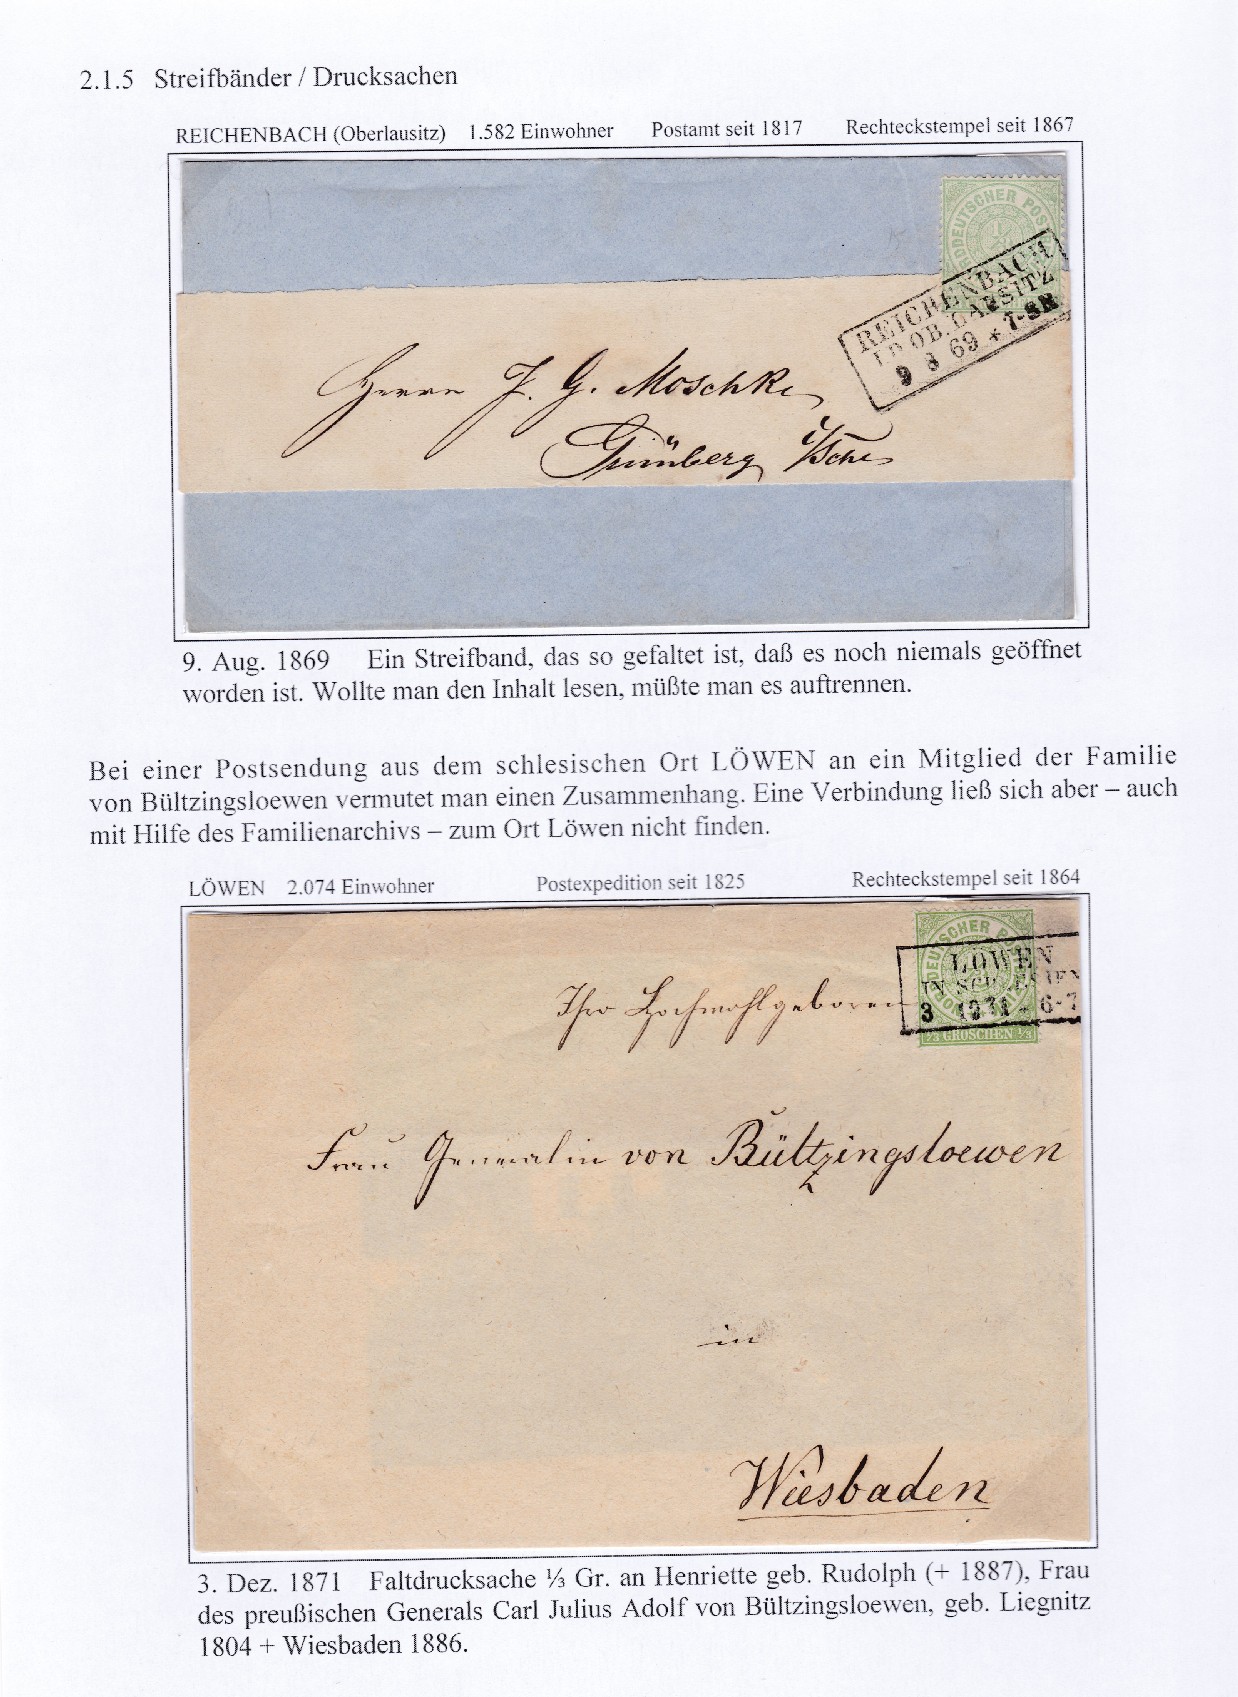 2.1.5 Streifbänder / Drucksachen
REICHENBACH (Oberlausitz) 1.582 Einwohner Postamt seit 1817 Rechteckstempel seit 1867
DEUTSCHER POST
REICHENBACH
I.D. OB. LAUSITZ
9 8 69 * 7-8N
Herrn J. G. Moschke
Grünberg i/Schl
9. Aug. 1869 Ein Streifband, das so gefaltet ist, daß es noch niemals geöffnet
worden ist. Wollte man den Inhalt lesen, müßte man es auftrennen.
Bei einer Postsendung aus dem schlesischen Ort LÖWEN an ein Mitglied der Familie
von Bültzingsloewen vermutet man einen Zusammenhang. Eine Verbindung ließ sich aber – auch
mit Hilfe des Familienarchivs – zum Ort Löwen nicht finden.
LÖWEN 2.074 Einwohner Postexpedition seit 1825 Rechteckstempel seit 1864
DEUTSCHER
LÖWEN
IN SCHLESIEN
3 12 71 * 6-7
1/3 GROSCHEN 1/3
Ihro Hochwohlgeboren
Frau Generalin von Bültzingsloewen
in
Wiesbaden
3. Dez. 1871 Faltdrucksache ⅓ Gr. an Henriette geb. Rudolph (+ 1887), Frau
des preußischen Generals Carl Julius Adolf von Bültzingsloewen, geb. Liegnitz
1804 + Wiesbaden 1886.